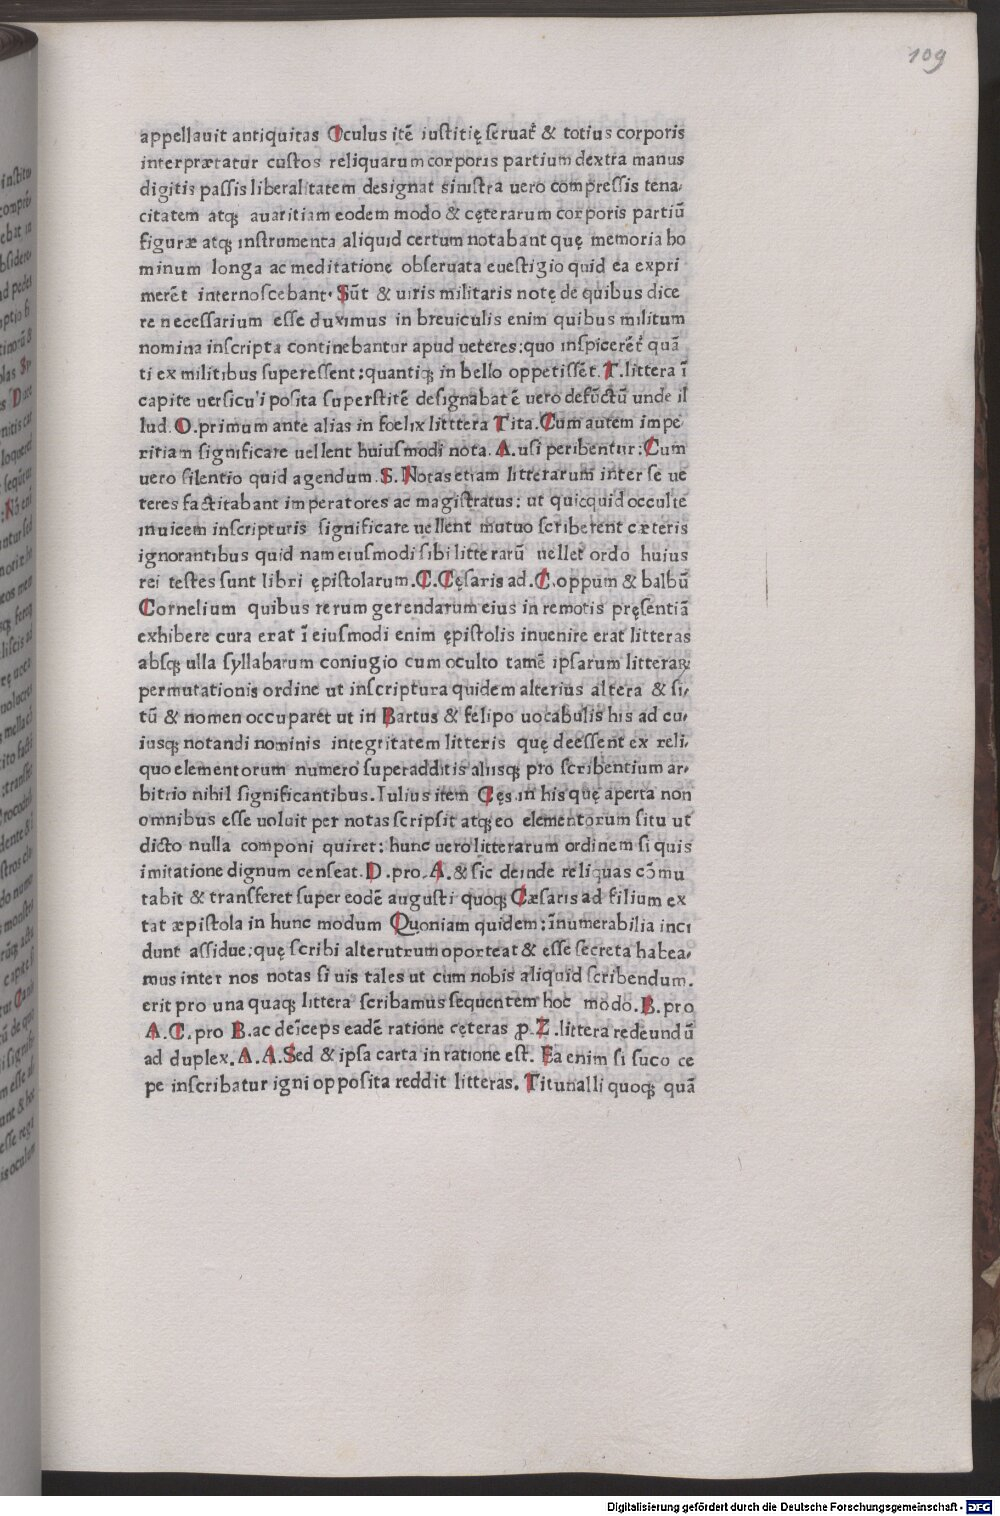 109
appellauit antiquitas Oculus itē iustitię seruat̄ & totius corporis
interprætatur custos reliquarum corporis partium dextra manus
digitis passis liberalitatem designat sinistra uero compressis tena,
citatem atqꝫ auaritiam eodem modo & cęterarum corporis partiū
figuræ atqꝫ instrumenta aliquid certum notabant quę memoria ho
minum longa ac meditatione obseruata euestigio quid ea expri
merēt internoscebant. Sūt & uiris militaris notę de quibus dice
re necessarium esse duximus in breuiculis enim quibus militum
nomina inscripta continebantur apud ueteres: quo inspicerēt̄ quā
ti ex militibus superessent: quantiqꝫ in bello oppetissēt. T. littera ī
capite uersicu'i posita superstitē designabat ē uero defūctū unde il
lud. O. primum ante alias in foelix litttera Tita. Cum autem impe
ritiam significare uellent huiusmodi nota. A. usi peribentur: Cum
uero silentio quid agendum. S. Notas etiam litterarum inter se ue
teres factitabant imperatores ac magistratus: ut quicquid occulte
inuicem inscripturis significare uellent mutuo scriberent cæteris
ignorantibus quid nam eiusmodi sibi litterarū uellet ordo huius
rei testes sunt libri ępistolarum. C. Cęsaris ad. C. oppum & balbū
Cornelium quibus rerum gerendarum eius in remotis pręsentiā
exhibere cura erat ī eiusmodi enim ępistolis inuenire erat litteras
absqꝫ ulla syllabarum coniugio cum oculto tamē ipsarum litterarꝝ
permutationis ordine ut inscriptura quidem alterius altera & si,
tū & nomen occuparet ut in Bartus & felipo uocabulis his ad cu,
iusqꝫ notandi nominis integritatem litteris quę deessent ex reli,
quo elementorum numero superadditis aliisqꝫ pro scribentium ar,
bitrio nihil significantibus. Iulius item Cęs in his quę aperta non
omnibus esse uoluit per notas scripsit atqꝫ eo elementorum situ ut
dicto nulla componi quiret: hunc uero litterarum ordinem si quis
imitatione dignum censeat. D. pro. A. & sic deinde reliquas cōmu
tabit & transferet super eodē augusti quoqꝫ Cæsaris ad filium ex
tat æpistola in hunc modum Quoniam quidem: īnumerabilia inci
dunt assidue: quę scribi alterutrum oporteat & esse secreta habea,
mus inter nos notas si uis tales ut cum nobis aliquid scribendum.
erit pro una quaqꝫ littera scribamus sequentem hoc modo. B. pro
A. C. pro B. ac deīceps eadē ratione cęteras ꝑ. Z. littera redeundū
ad duplex. A. A. Sed & ipsa carta in ratione est. Ea enim si suco ce
pe inscribatur igni opposita reddit litteras. Titunalli quoqꝫ quā
Digitalisierung gefördert durch die Deutsche Forschungsgemeinschaft - DFG